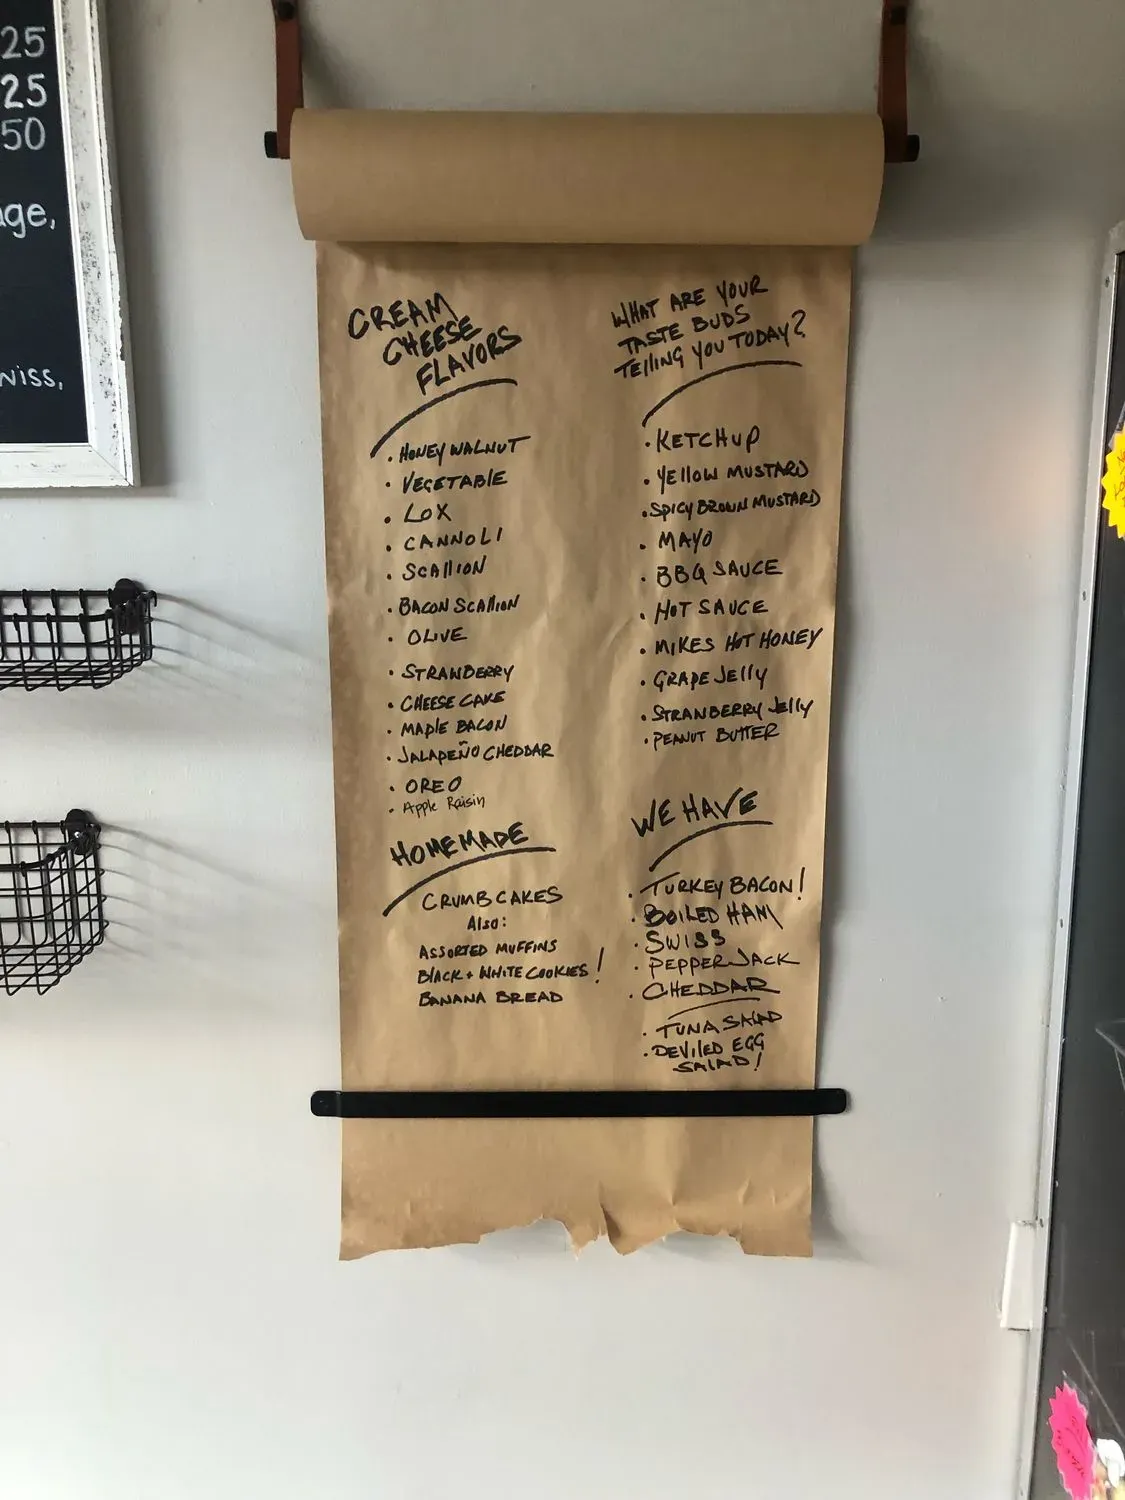 25
25
50
age,
wiss,
CREAM
CHEESE
FLAVORS
• HONEY WALNUT
• VEGETABLE
• LOX
• CANNOLI
• SCAllION
• BACON SCAllION
• OLIVE
• STRAWBERRY
• CHEESE CAKE
• MAPlE BACON
• JALAPEÑO CHEDDAR
• OREO
• Apple Raisin
HOMEMADE
CRUMB CAKES
Also:
ASSORTED MUFFINS
BlACK + WHITE COOKIES!
BANANA BREAD
WHAT ARE YOUR
TASTE BUDS
TEllING YOU TODAY?
• KETCHUP
• YEllOW MUSTARD
• SPICY BROWN MUSTARD
• MAYO
• BBQ SAUCE
• HOT SAUCE
• MIKES HOT HONEY
• GRAPE JElly
• STRAWBERRY JElly
• PEANUT BUTTER
WE HAVE
• TURKEY BACON!
• BOILED HAM
• SWISS
• PEPPER JACK
• CHEDDAR
• TUNA SALAD
• DEVIlED EGG
SALAD!